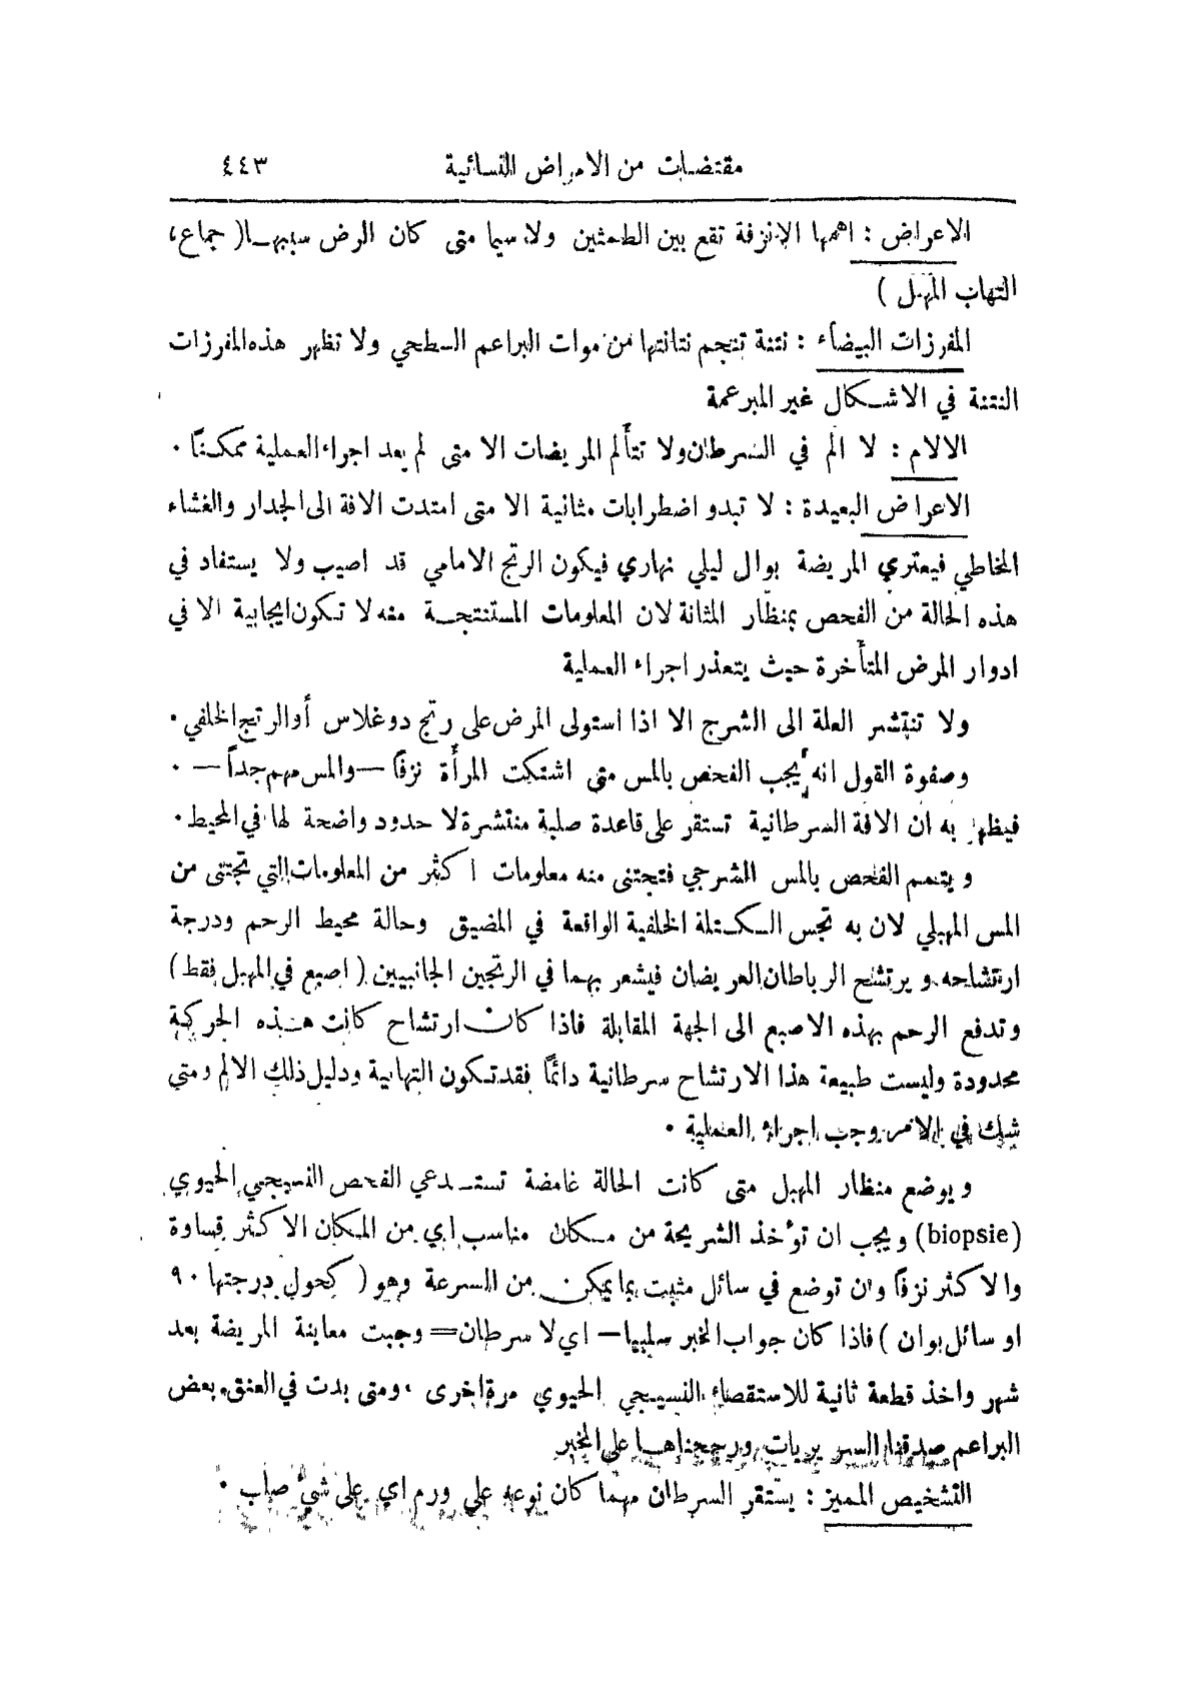 مقتضبات من الامراض النسائية ٤٤٣
الاعراض : اهمها الانزفة تقع بين الطمثين ولا سيما متى كان الرض سببهــا( جماع،
التهاب المهبل )
المفرزات البيضاء : نتنة تنجم نتانتها من موات البراعم السطحي ولا تظهر هذه المفرزات
النتنة في الاشـكال غير المبرعمة
الالام : لا الم في السرطان ولا تتألم المريضات الا متى لم يعد اجراء العملية ممكناً .
الاعراض البعيدة : لا تبدو اضطرابات مثانية الا متى امتدت الافة الى الجدار والغشاء
المخاطي فيعتري المريضة بوال ليلي نهاري فيكون الرتج الامامي قد اصيب ولا يستفاد في
هذه الحالة من الفحص بمنظار المثانة لان المعلومات المستنتجـة منه لا تكون ايجابية الا في
ادوار المرض المتأخرة حيث يتعذر اجراء العملية
ولا تنتشر العلة الى الشرج الا اذا استولى المرض على رتج دوغلاس أو الرتج الخلفي .
وصفوة القول انه يجب الفحص بالمس متى اشتكت المرأة نزفاً — والمس مهم جداً — .
فيظهر به ان الافة السرطانية تستقر على قاعدة صلبة منتشرة لا حدود واضحة لها في المحيط .
ويتمم الفحص بالمس الشرجي فتجتنى منه معلومات اكثر من المعلومات التي تجتنى من
المس المهبلي لان به تجس الـكـتلة الخلفية الواقعة في المضيق وحالة محيط الرحم ودرجة
ارتشاحه ويرتشح الرباطان العريضان فيشعر بهما في الرتجين الجانبيين ( اصبع في المهبل فقط )
وتدفع الرحم بهذه الاصبع الى الجهة المقابلة فاذا كان ارتشاح كانت هـذه الحركة
محدودة وليست طبيعة هذا الارتشاح سرطانية دائماً فقد تـكون التهابية ودليل ذلك الالم ومتى
شك في الامر وجب اجراء العملية .
ويوضع منظار المهبل متى كانت الحالة غامضة تستـدعي الفحص النسيجي الحيوي
(biopsie) ويجب ان تؤخذ الشريحة من مـكان مناسب اي من المكان الاكثر قساوة
والاكثر نزفاً وان توضع في سائل مثبت بما يمكن من السرعة وهو ( كحول درجتها ٩٠
او سائل بوان ) فاذا كان جواب المخبر سلبيا — اي لا سرطان = وجبت معاينة المريضة بعد
شهر واخذ قطعة ثانية للاستقصاء النسيجي الحيوي مرة اخرى ، ومتى بدت في العنق بعض
البراعم صدقنا السريريات ورجحناهـا على المخبر
التشخيص المميز : يستقر السرطان مهما كان نوعه على ورم اي على شيء صلب .